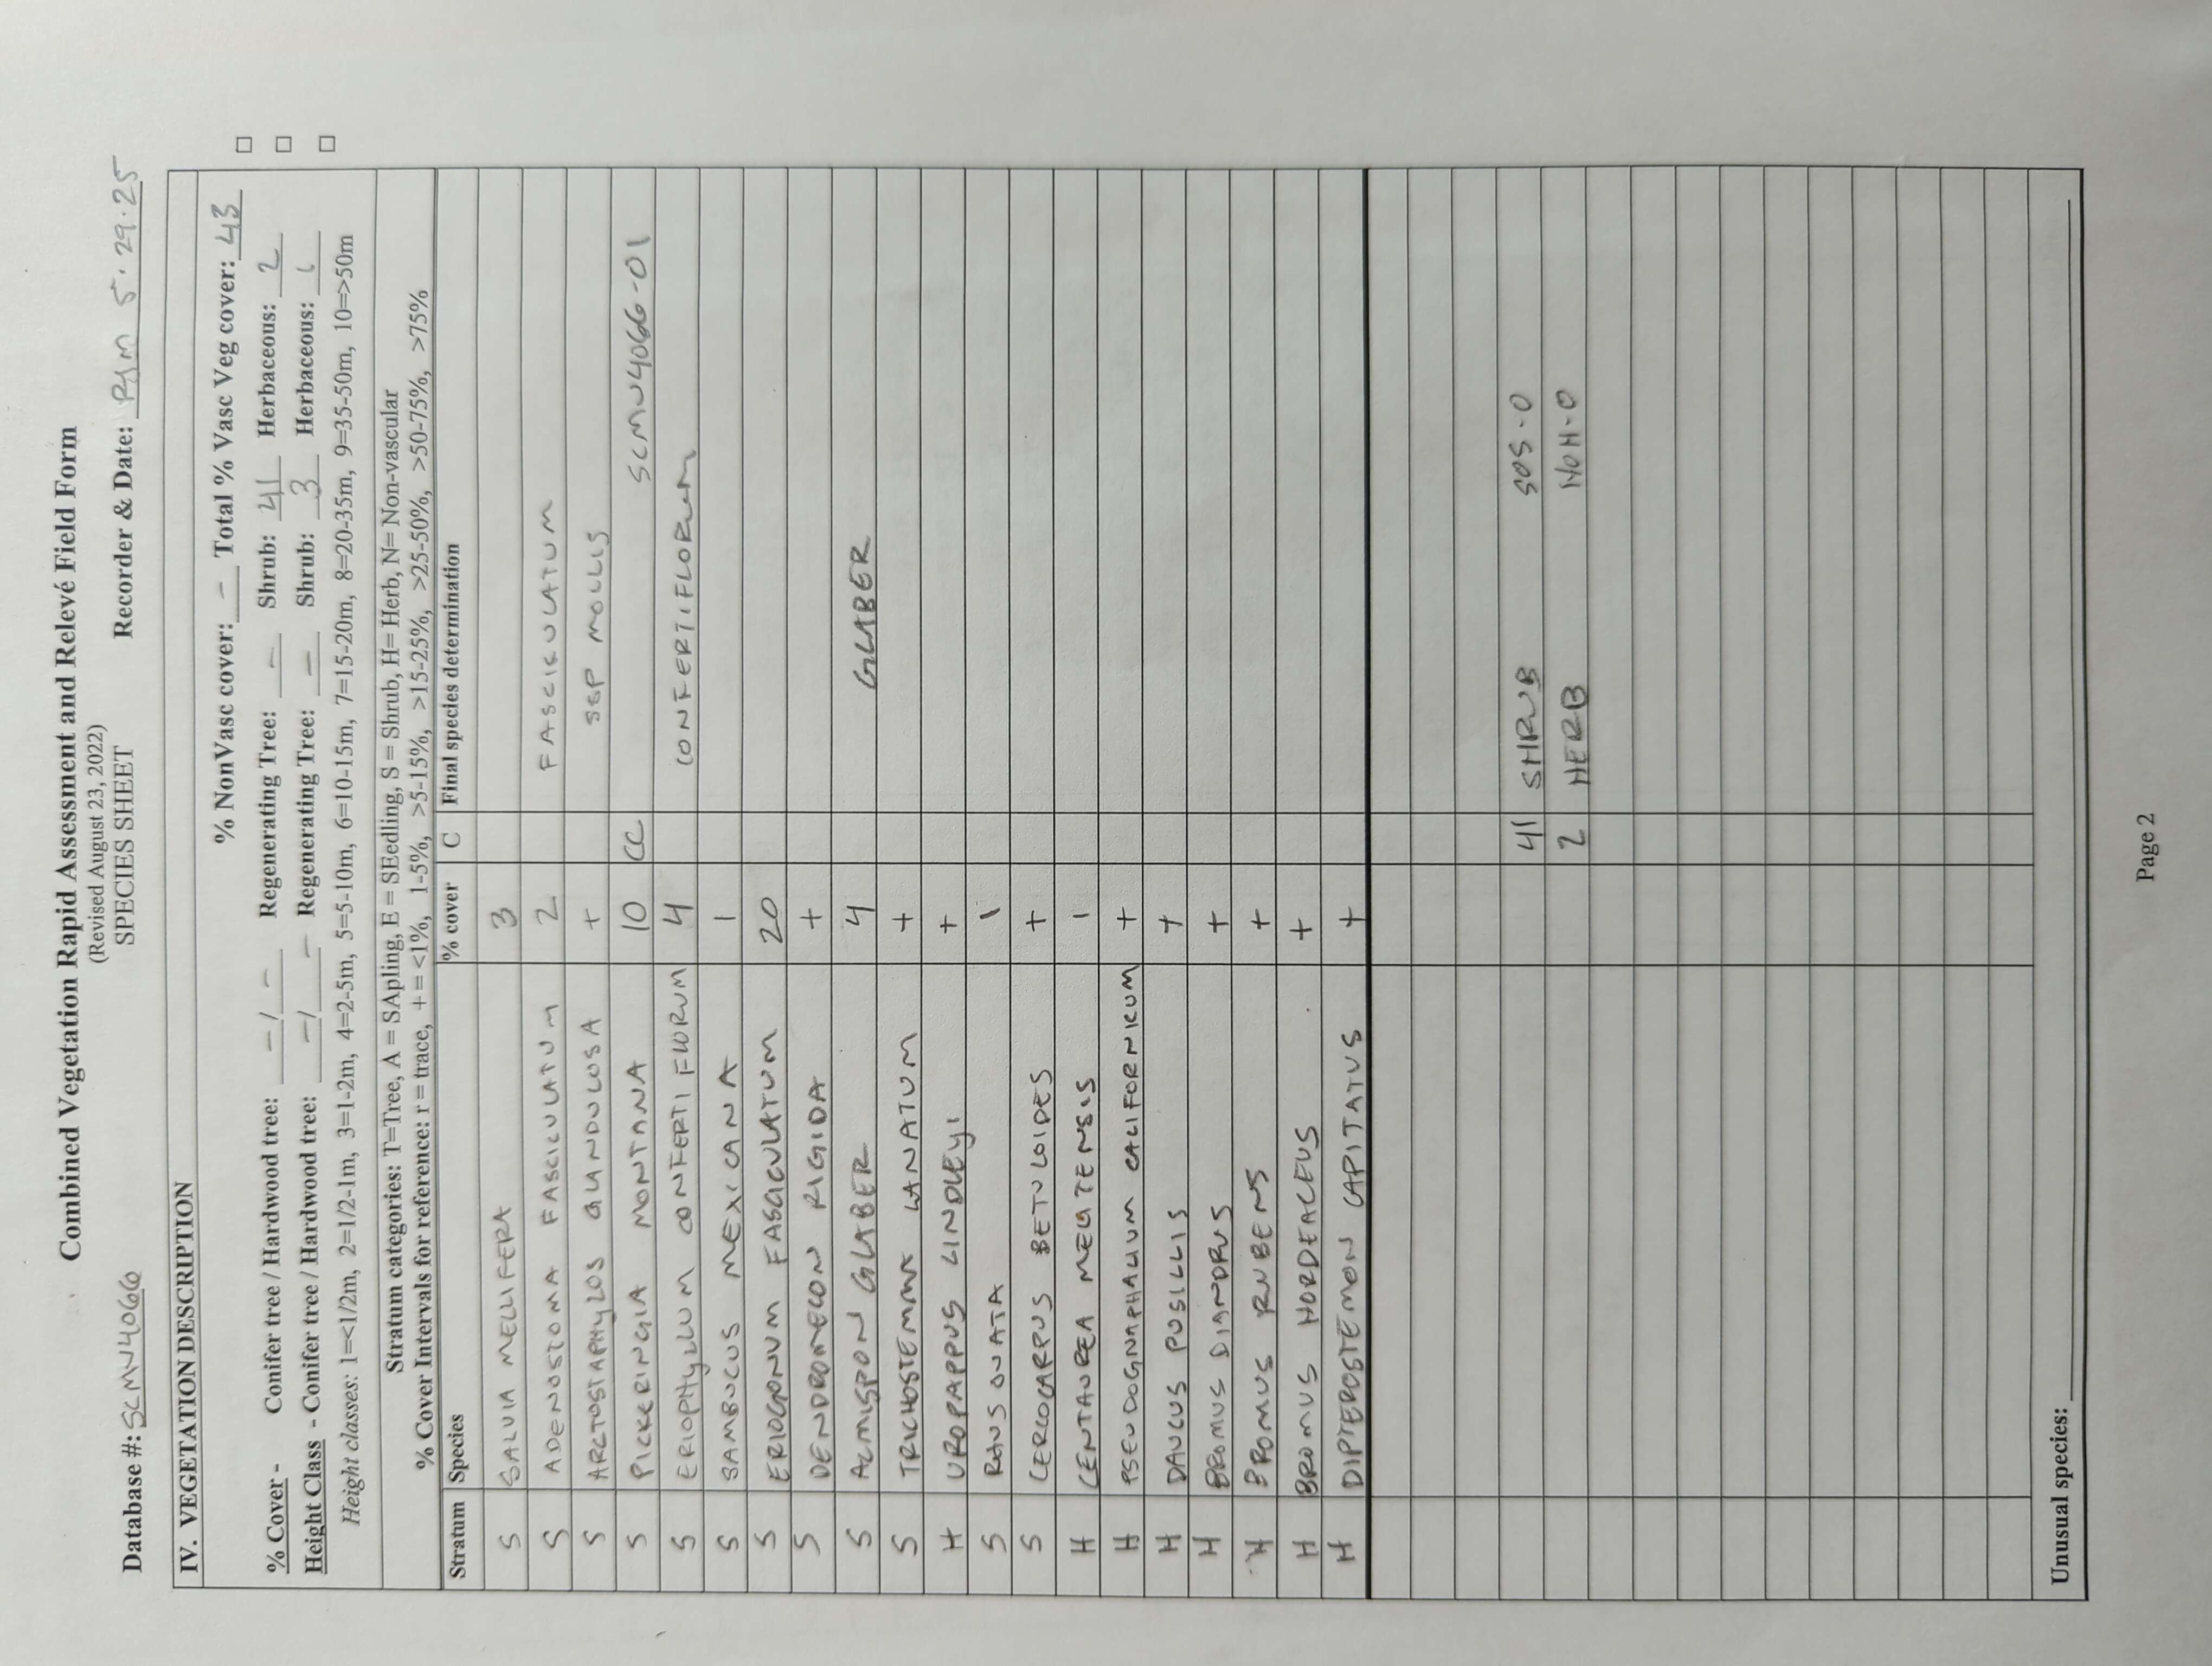 Combined Vegetation Rapid Assessment and Relevé Field Form
(Revised August 23, 2022)
Database #: SCMU4066 SPECIES SHEET Recorder & Date: 5.29.25
IV. VEGETATION DESCRIPTION
% NonVasc cover: — Total % Vasc Veg cover: 43
% Cover - Conifer tree / Hardwood tree: —/— Regenerating Tree: — Shrub: 41 Herbaceous: 2
Height Class - Conifer tree / Hardwood tree: —/— Regenerating Tree: — Shrub: 3 Herbaceous: 1
Height classes: 1=<1/2m, 2=1/2-1m, 3=1-2m, 4=2-5m, 5=5-10m, 6=10-15m, 7=15-20m, 8=20-35m, 9=35-50m, 10=>50m
Stratum categories: T=Tree, A = SApling, E = SEedling, S = Shrub, H= Herb, N= Non-vascular
% Cover Intervals for reference: r = trace, + = <1%, 1-5%, >5-15%, >15-25%, >25-50%, >50-75%, >75%
Stratum Species % cover C Final species determination
S SALVIA MELLIFERA 3
S ADENOSTOMA FASCICULATUM 2 FASCIKULATUM
S ARCTOSTAPHYLOS GLANDULOSA + SSP MOLLIS
S PICKERINGIA MONTANA 10 CC SCMU4066-01
S ERIOPHYLLUM CONFERTIFLORUM 4 CONFERTIFLORUM
S SAMBUCUS MEXICANA 1
S ERIOGONUM FASCICULATUM 20
S DENDROMECON RIGIDA +
S ACMISPON GLABER 4 GLABER
S TRICHOSTEMMA LANATUM +
H UROPAPPUS LINDLEYI +
S RHUS OVATA 1
S CERCOCARPUS BETULOIDES +
H CENTAUREA MELITENSIS 1
H PSEUDOGNAPHALIUM CALIFORNICUM +
H DAUCUS PUSILLIS +
H BROMUS DIANDRUS +
H BROMUS RUBENS +
H BROMUS HORDEACEUS +
H DIPTEROSTEMON CAPITATUS +
41 SHRUB SOS-0
2 HERB NOH-0
Unusual species:
Page 2